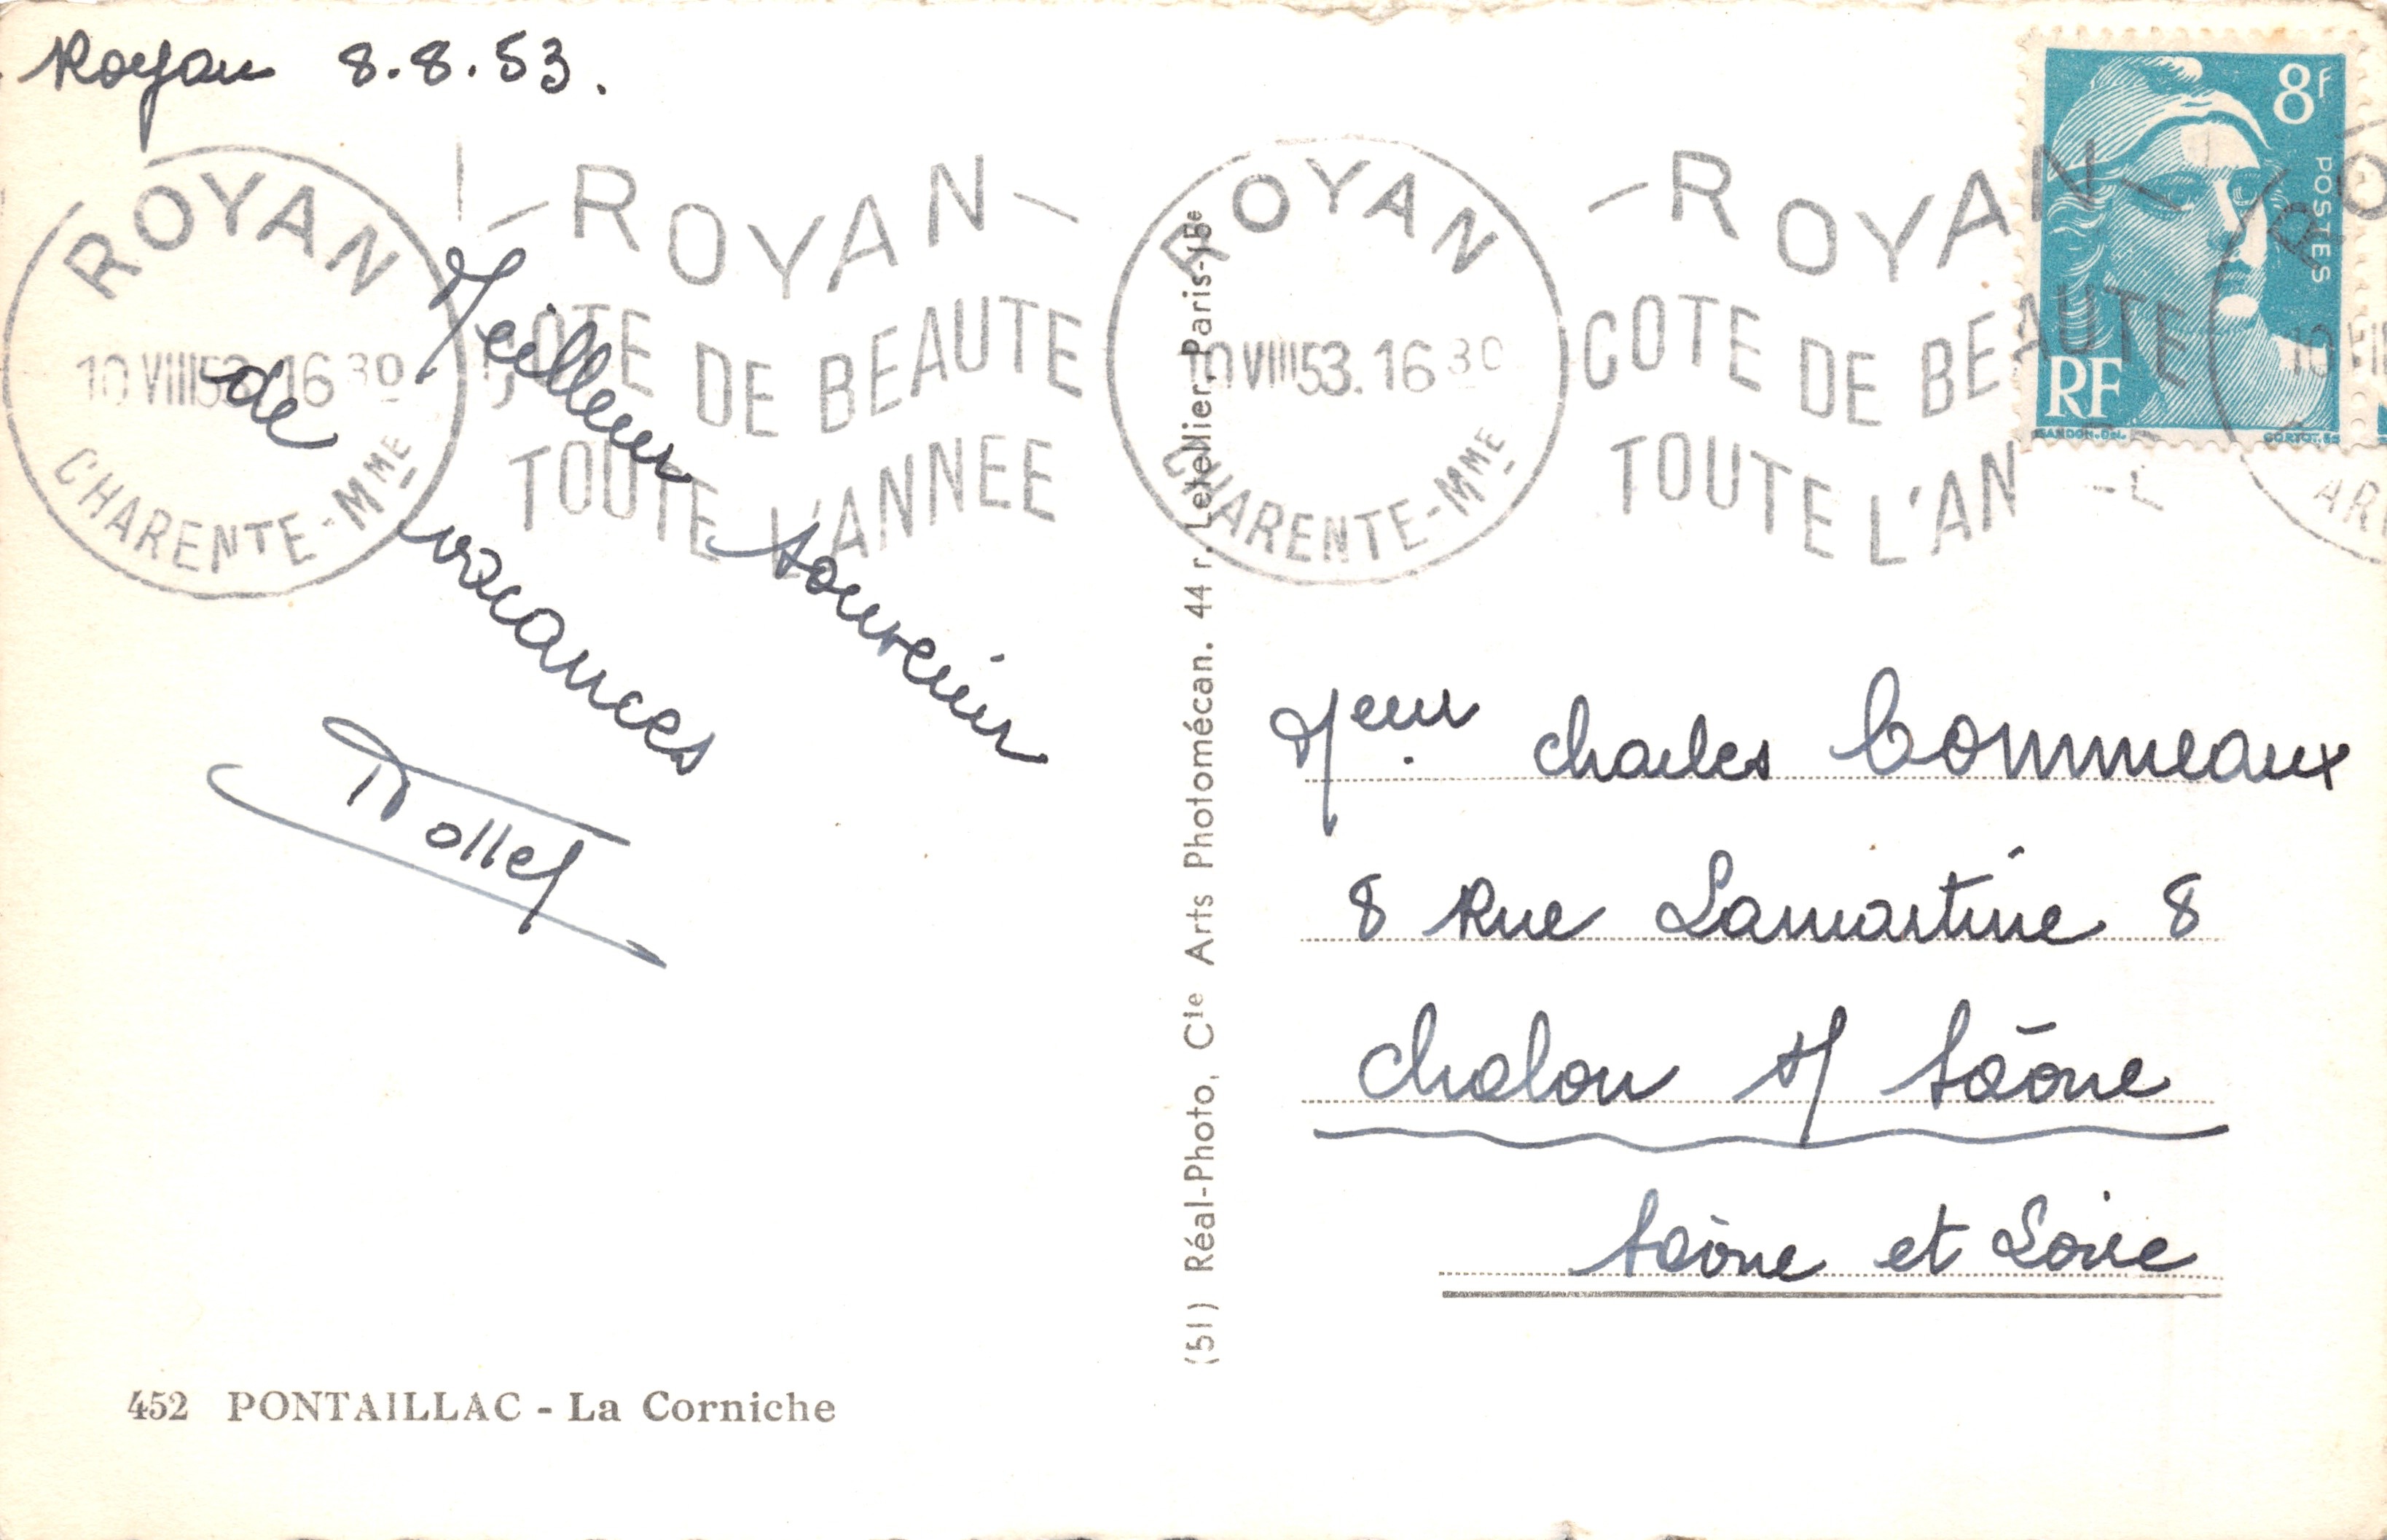 Royan 8.8.53.
ROYAN
10 VIII 53.16 30
CHARENTE-MME
- ROYAN -
COTE DE BEAUTE
TOUTE L'ANNEE
ROYAN
10 VIII 53.16 30
CHARENTE-MME
- ROYAN -
COTE DE BEAUTE
TOUTE L'AN
8F
POSTES
RF
GANDON.DEL.
CORTOT.
Meilleur souvenir
de vacances
(51) Réal-Photo, Cie Arts Photomécan. 44 r. Letellier, Paris-15e
Meur charles Commeaux
8 Rue Lamartine 8
chalon s/ Saône
Saône et Loire
452 PONTAILLAC - La Corniche